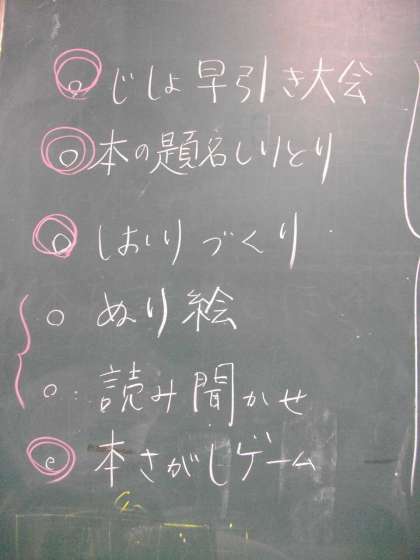 ○ じしょ早引き大会
○ 本の題名しりとり
○ しおりづくり
○ ぬり絵
○ 読み聞かせ
○ 本さがしゲーム